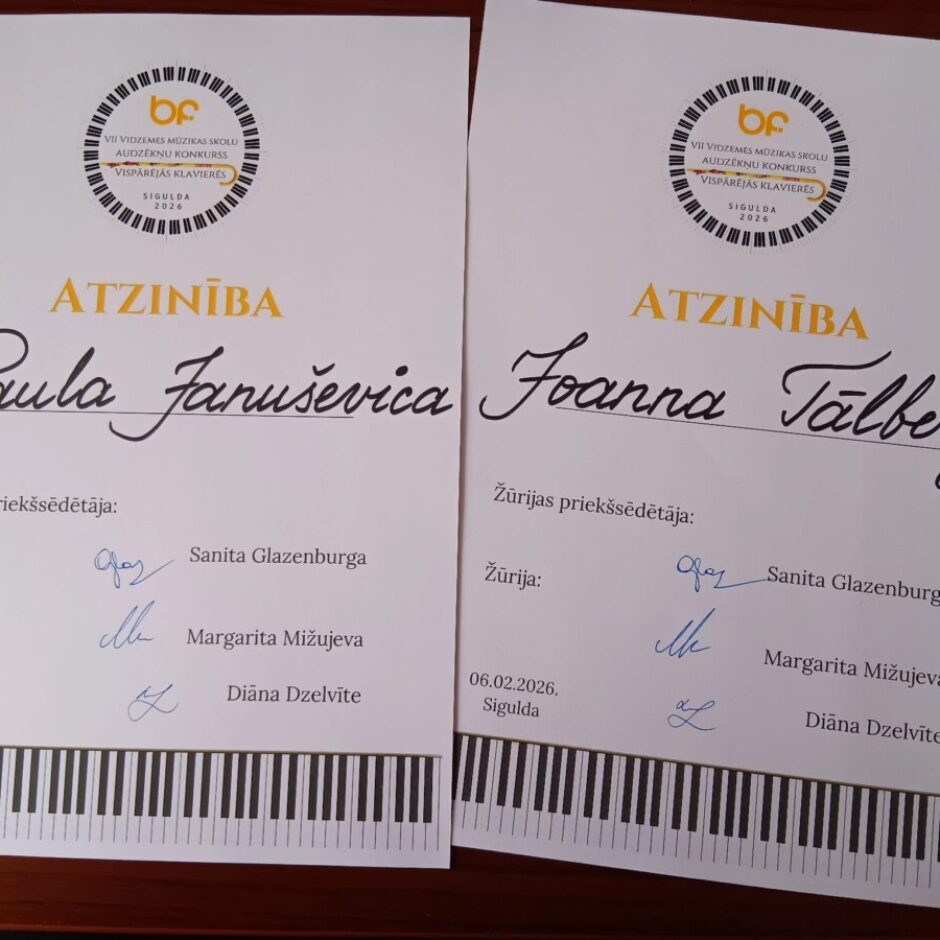 bf
VII Vidzemes mūzikas skolu
audzēkņu konkurss
Vispārējās klavierēs
SIGULDA
2026
Atzinība
Paula Januševica
riekšsēdētāja:
Sanita Glazenburga
Margarita Mižujeva
Diāna Dzelvīte
bf
VII Vidzemes mūzikas skolu
audzēkņu konkurss
Vispārējās klavierēs
SIGULDA
2026
Atzinība
Joanna Tālbe
Žūrijas priekšsēdētāja:
Sanita Glazenburg
Žūrija:
Margarita Mižujeva
06.02.2026.
Sigulda
Diāna Dzelvīte